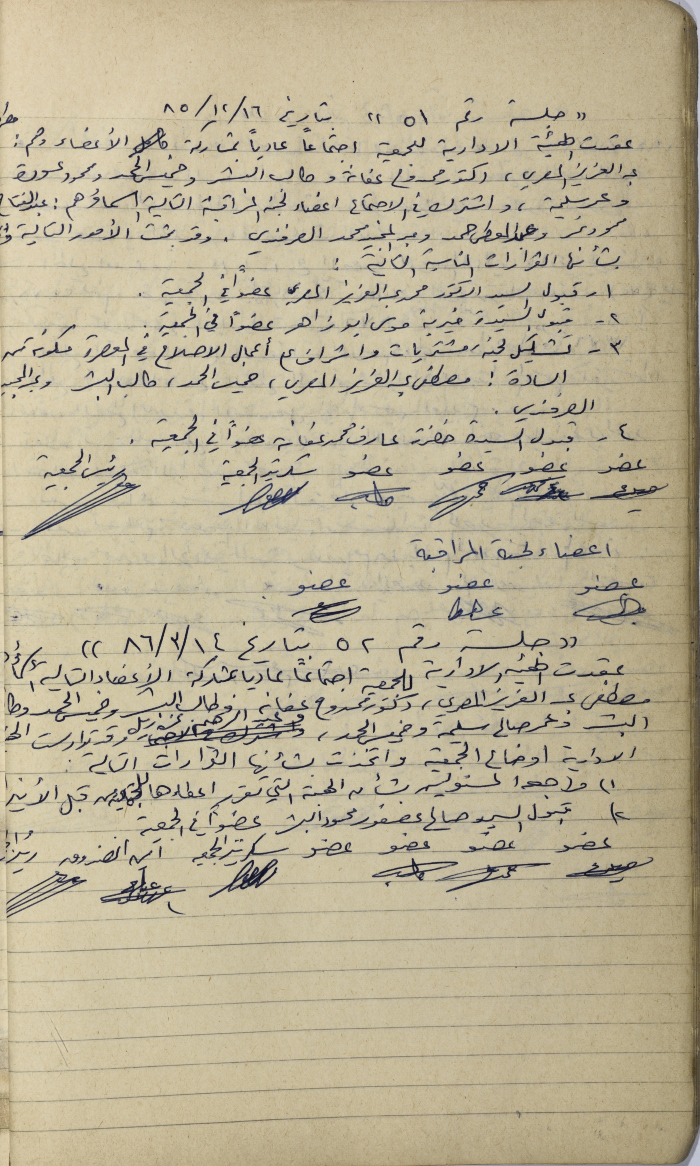 « جلسة رقم ٥١ » بتاريخ ٨٥/١٢/١٦
عقدت الهيئة الادارية للجمعية اجتماعاً عادياً بمشاركة الأعضاء وهم:
عبد العزيز المصري، دكتور ممدوح عفانة وطالب البشر وخميس الحمد ومحمود عودة
وعمر سلمية، واشترك في الاجتماع اعضاء لجنة المراقبة التالية اسماؤهم: عبد الفتاح
محمود نمر وعبد المعطي حمد وعبد المجيد محمد الصرفندي. وقد بحثت الأمور التالية
بشأنها القرارات المناسبة التالية:
١- قبول السيد الدكتور محمد عبد العزيز المصري عضواً في الجمعية.
٢- قبول السيدة خيرية موسى ابو زاهر عضواً في الجمعية.
٣- تشكيل لجنة مشتريات واشراف على أعمال الاصلاح في المعصرة مكونة من
السادة: مصطفى عبد العزيز المصري، خميس الحمد، طالب البشر وعبد المجيد
الصرفندي.
٤- قبول السيدة خضرة عارف محمد عفانة عضواً في الجمعية.
عضو عضو عضو عضو سكرتير الجمعية رئيس الجمعية
اعضاء لجنة المراقبة
عضو عضو عضو
« جلسة رقم ٥٢ بتاريخ ٨٦/٣/١٤ »
عقدت الهيئة الادارية للجمعية اجتماعاً عادياً بمشاركة الأعضاء التالية
مصطفى عبد العزيز المصري، دكتور ممدوح عفانة، وطالب البشر وخميس الحمد
البشر، عمر صالح سلمية وخميس الحمد، وقد تدارست
الادارية اوضاع الجمعية واتخذت بشأنها القرارات التالية:
١) المسئولين بشأن المنحة التي تقرر اعطاءها للجمعية من قبل
٢) قبول السيد صالح عصفور محمود البشر عضواً في الجمعية
عضو عضو عضو عضو سكرتير الجمعية امين الصندوق